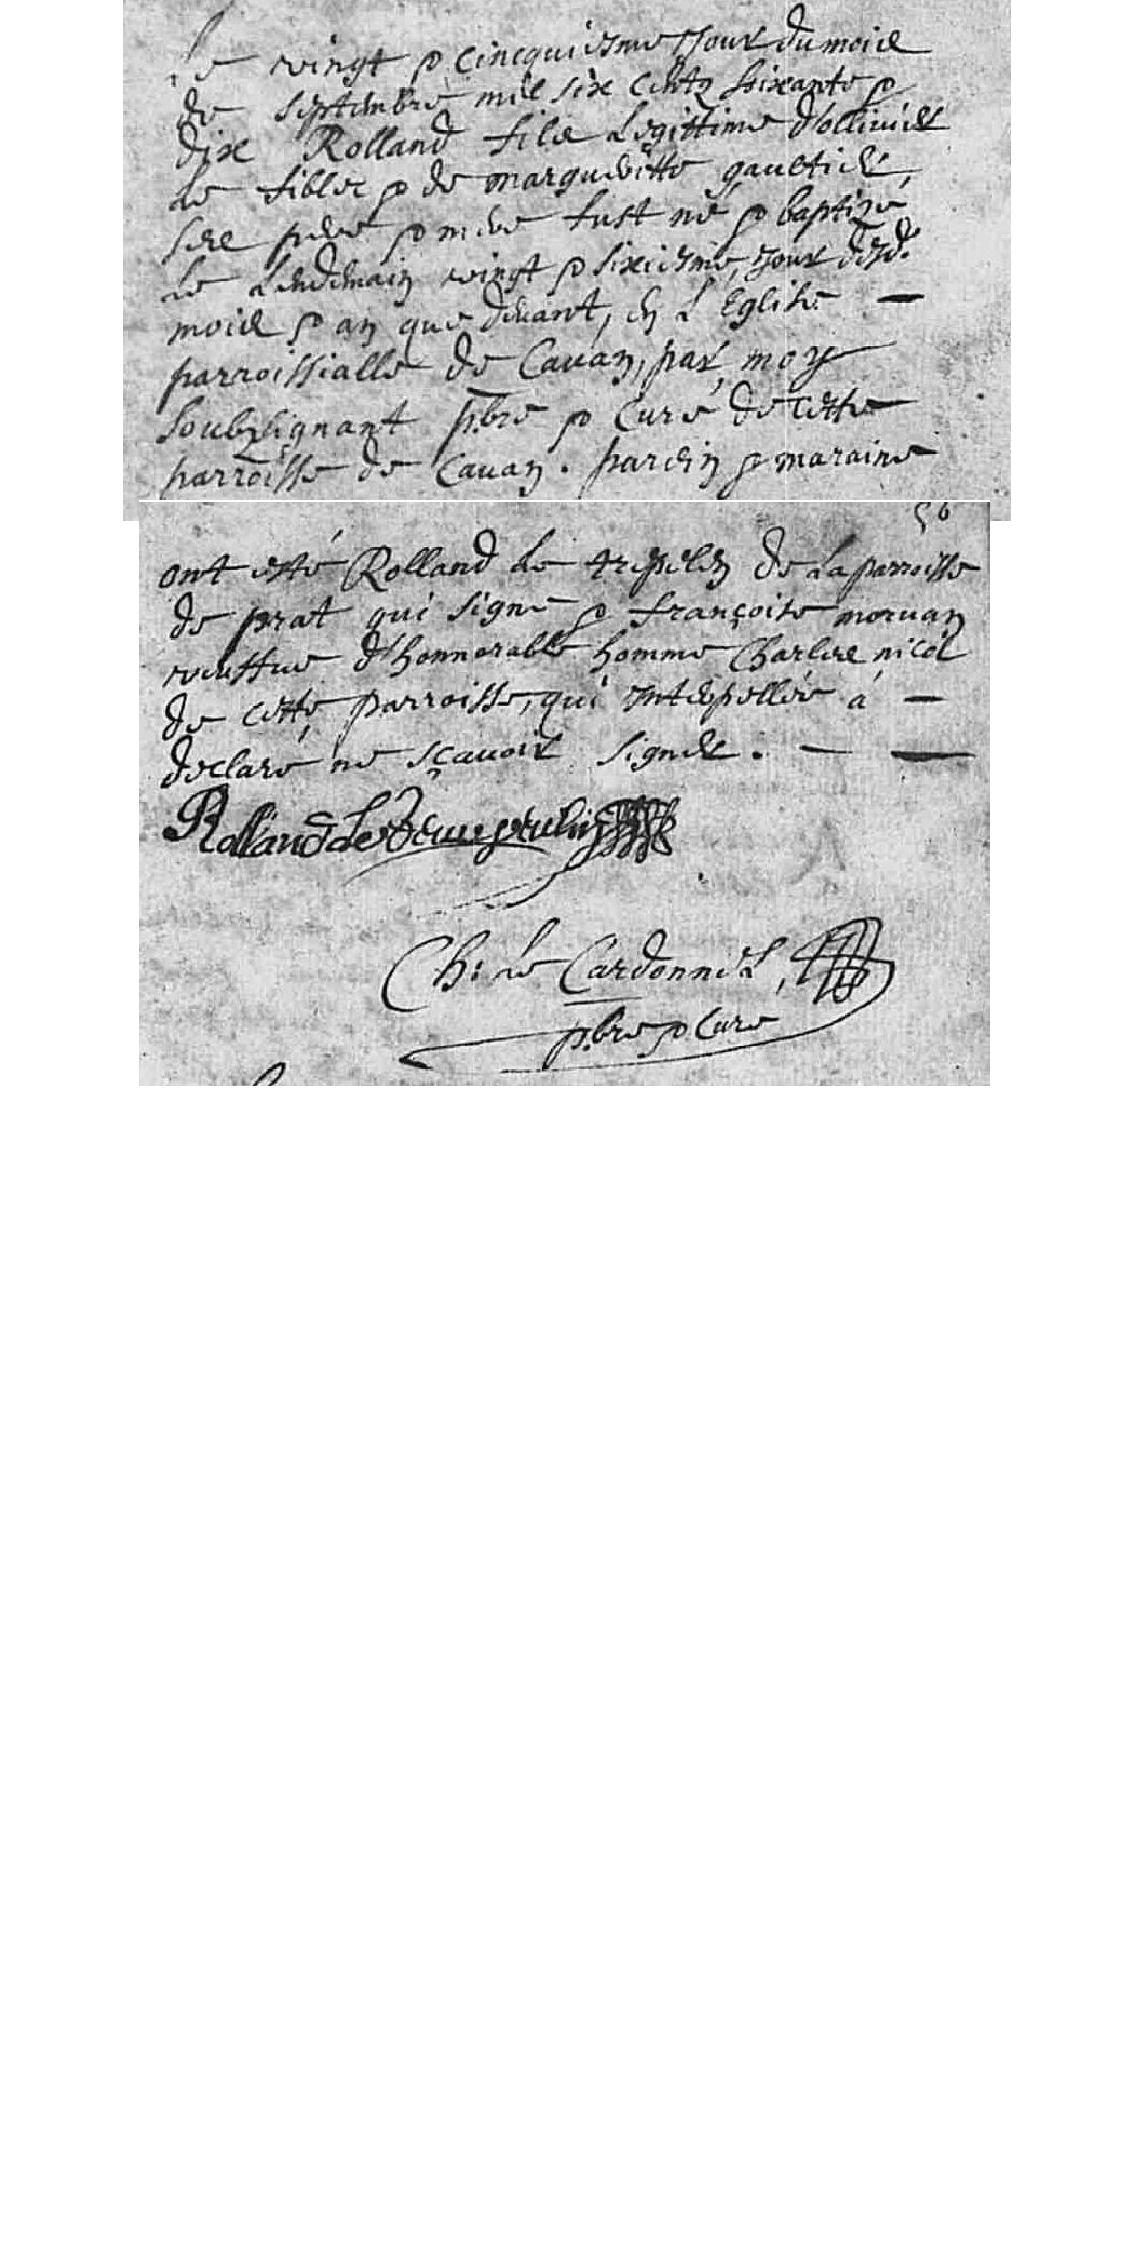 Le vingt & cincquiesme Jour du mois
de septembre mil six cents soixante &
dix Rolland fils Legittime d'ollivier
Le fiblec & de margueritte gaultier,
ses pere & mere fust né & baptizé
Le Lendemain vingt & sixiesme, Jour desd.
mois & an que devant, en L'Eglise —
parroissialle de Cavan, par moy
soubzsignant pbre & Curé de cette
parroisse de Cavan. parein & maraine
56
ont esté Rolland Le de La parroisse
de prat qui signe & françoise morvan
veuffve d'honnorable homme Charles nicol
de cette parroisse, qui interpellée a —
declaré ne sçavoir signer. — —
Rolland Le
Ch: Le Cardonnel,
pbre & Curé